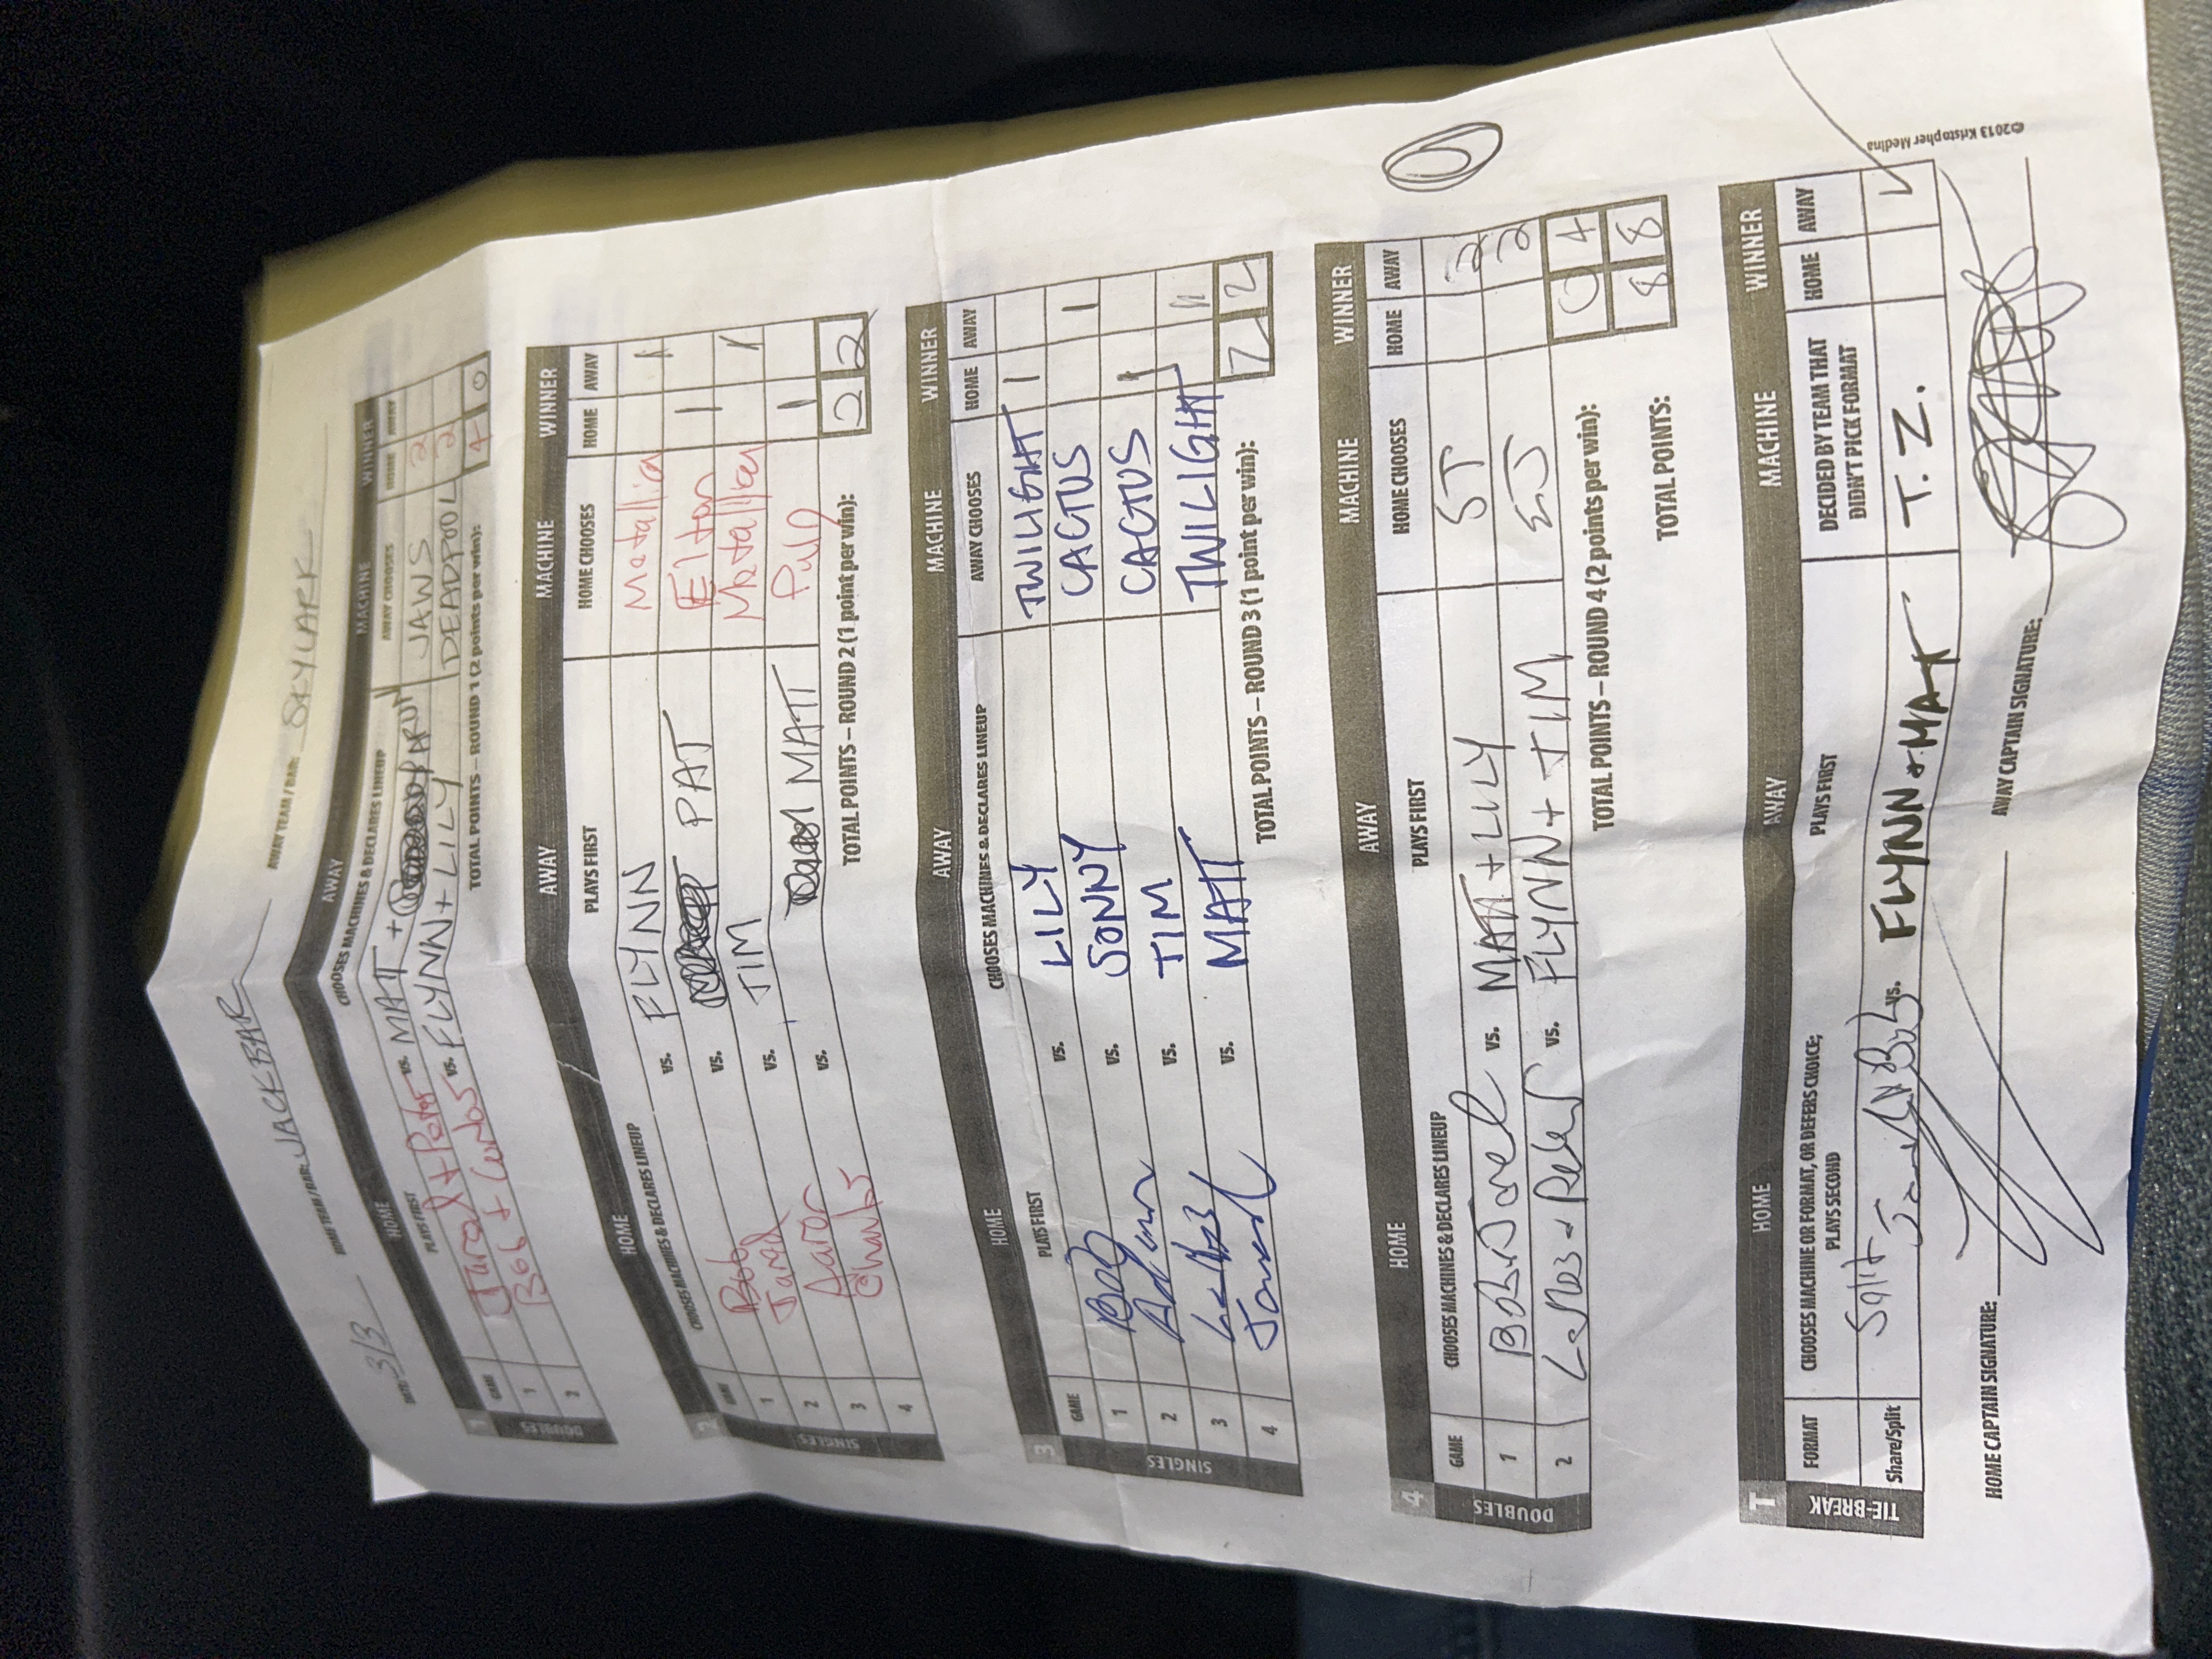 DATE: 3/3 HOME TEAM / BAR: JACKBAR AWAY TEAM / BAR: SKYLARK
1 HOME AWAY MACHINE WINNER
GAME PLAYS FIRST CHOOSES MACHINES & DECLARES LINEUP AWAY CHOOSES HOME AWAY
DOUBLES
1 Jared + Peter vs. MATT + JAWS 2
2 Bob + Carlos vs. FLYNN + LILY DEADPOOL 2
TOTAL POINTS – ROUND 1 (2 points per win): 4 0
2 HOME AWAY MACHINE WINNER
GAME CHOOSES MACHINES & DECLARES LINEUP PLAYS FIRST HOME CHOOSES HOME AWAY
SINGLES
1 Bob vs. FLYNN Metallica 1
2 Jared vs. PAT Elton 1
3 Aaron vs. TIM Metallica 1
4 Charles vs. MATT Pulp 1
TOTAL POINTS – ROUND 2 (1 point per win): 2 2
3 HOME AWAY MACHINE WINNER
GAME PLAYS FIRST CHOOSES MACHINES & DECLARES LINEUP AWAY CHOOSES HOME AWAY
SINGLES
1 Bob vs. LILY TWILIGHT 1
2 vs. SONNY CACTUS 1
3 vs. TIM CACTUS 1
4 vs. MATT TWILIGHT 1
TOTAL POINTS – ROUND 3 (1 point per win): 2 2
4 HOME AWAY MACHINE WINNER
GAME CHOOSES MACHINES & DECLARES LINEUP PLAYS FIRST HOME CHOOSES HOME AWAY
DOUBLES
1 vs. MATT + LILY ST 2
2 vs. FLYNN + TIM EJ 2
TOTAL POINTS – ROUND 4 (2 points per win): 0 4
TOTAL POINTS: 8 8
T HOME AWAY MACHINE WINNER
TIE-BREAK
FORMAT CHOOSES MACHINE OR FORMAT, OR DEFERS CHOICE; PLAYS SECOND PLAYS FIRST DECIDED BY TEAM THAT DIDN'T PICK FORMAT HOME AWAY
Share/Split Split vs. FLYNN + MATT T. Z.
HOME CAPTAIN SIGNATURE: AWAY CAPTAIN SIGNATURE:
©2013 Kristopher Medina